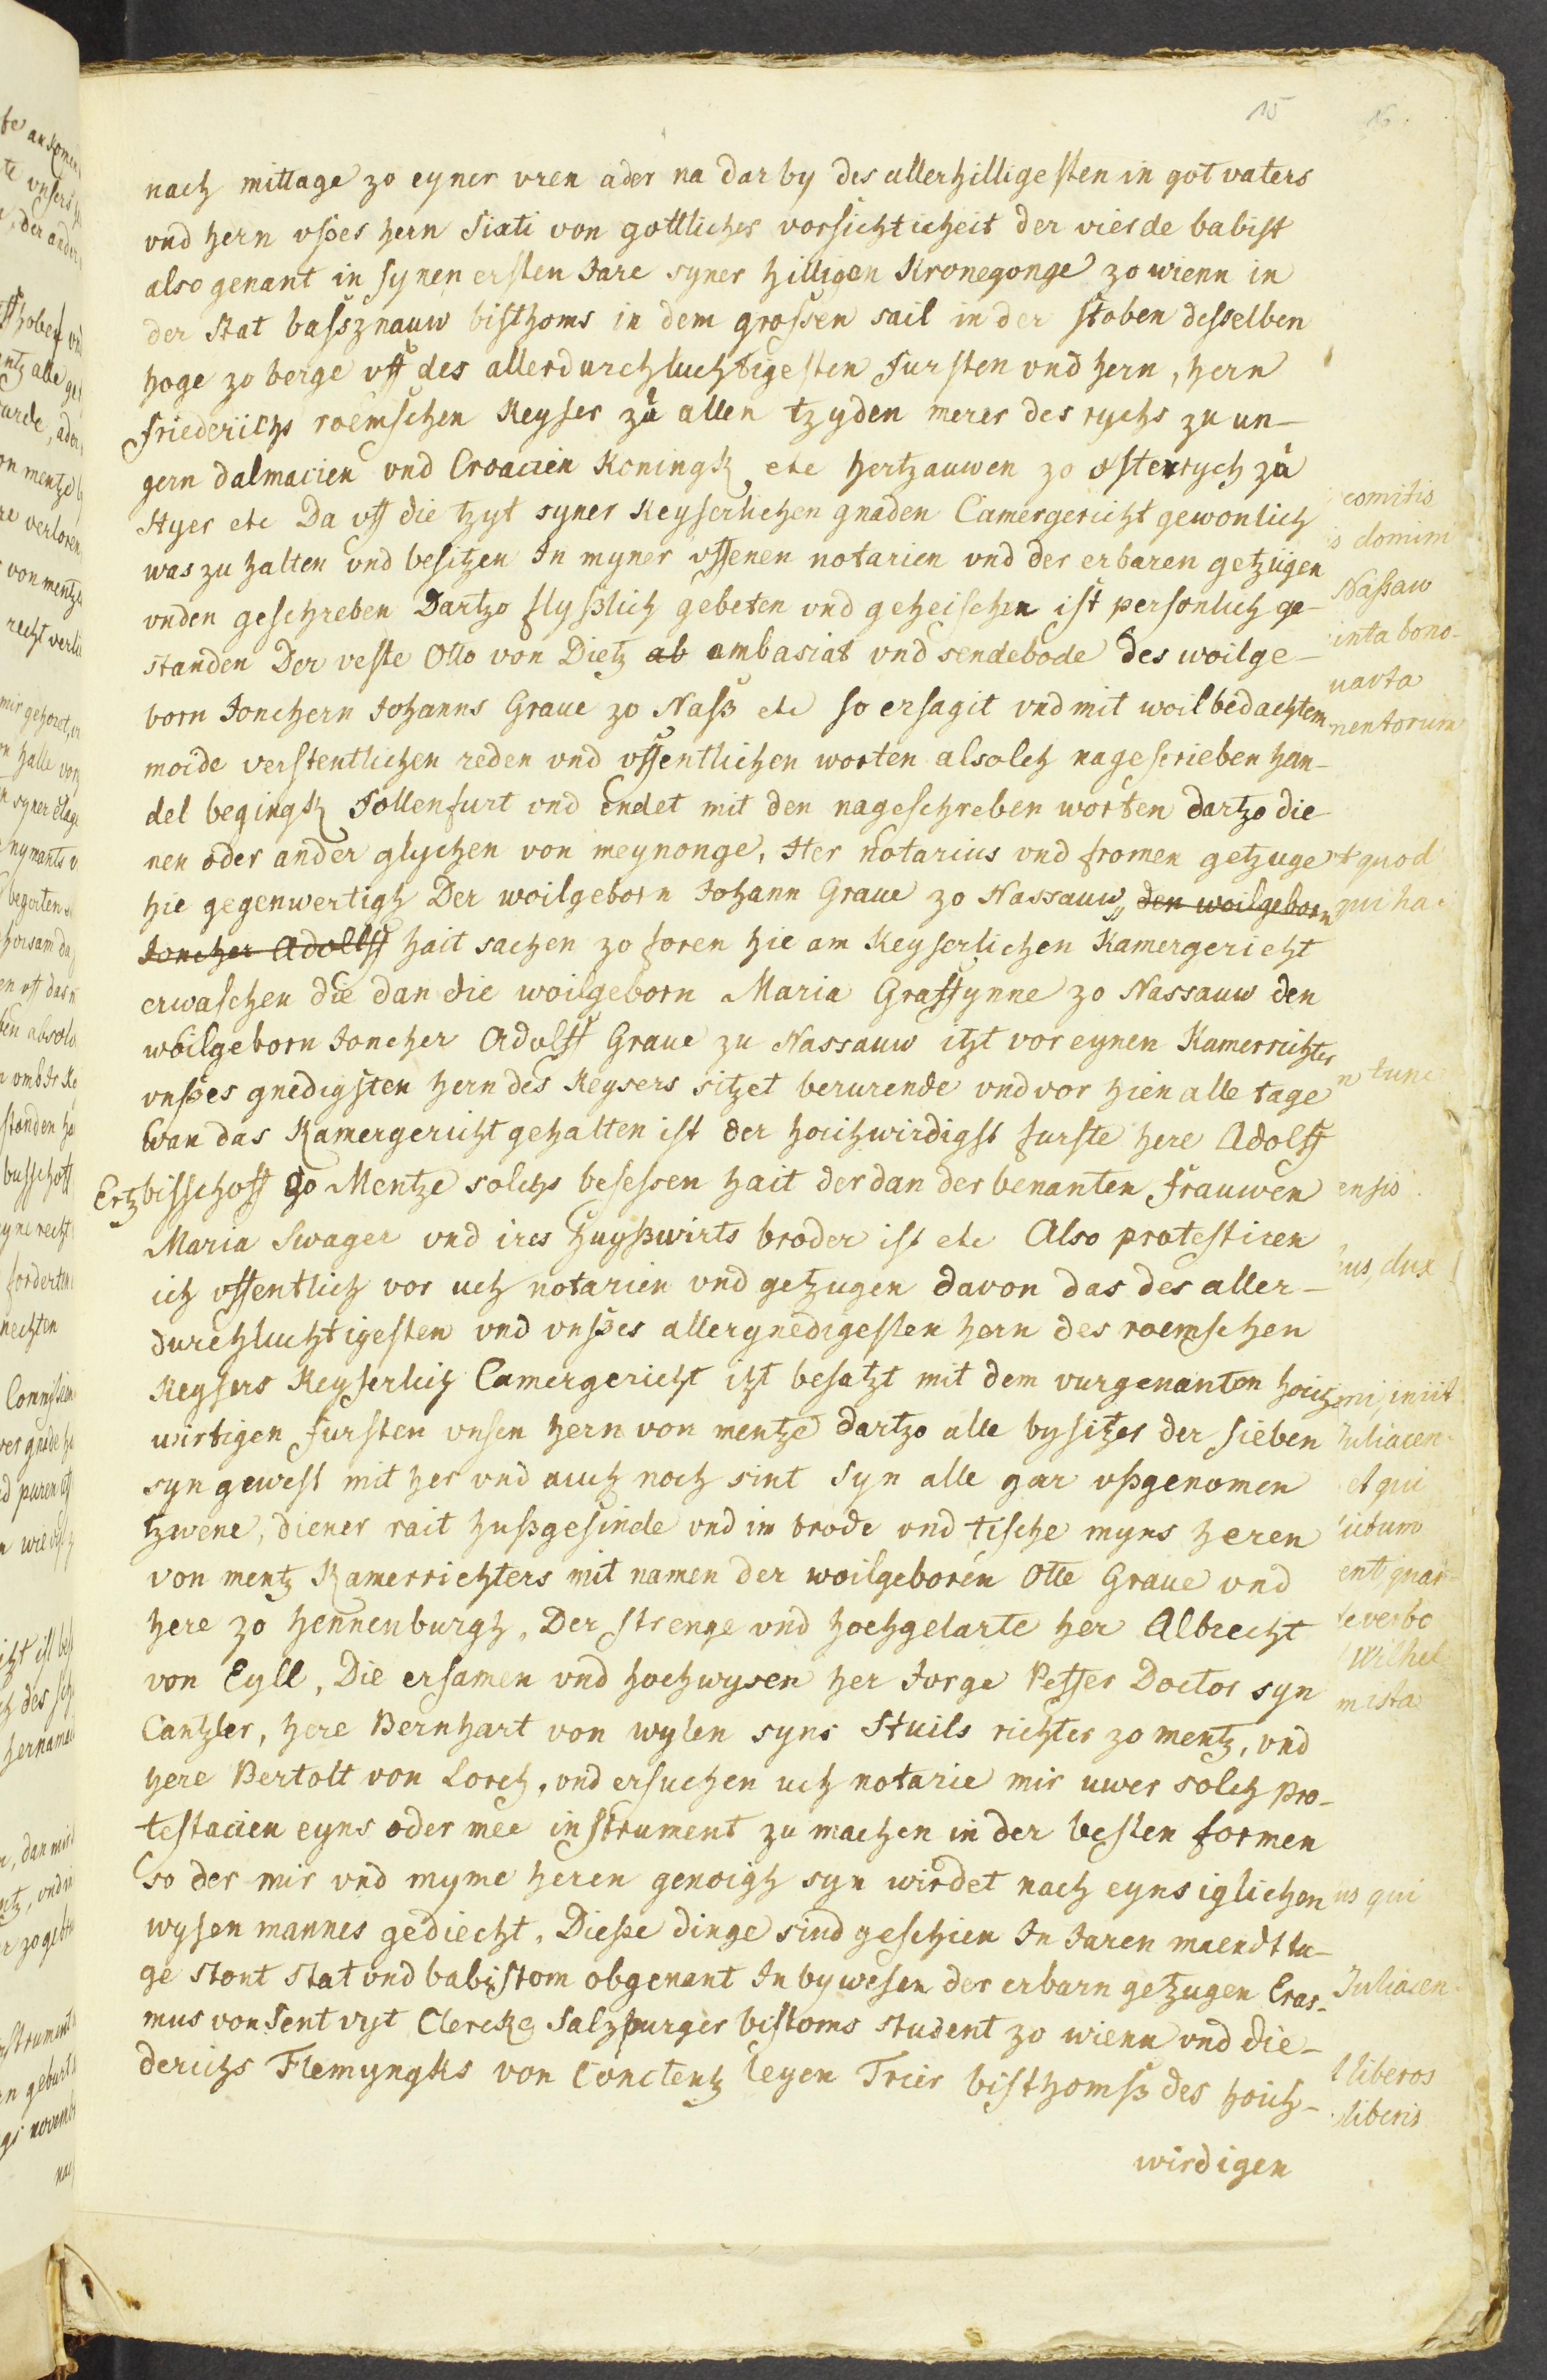 15
16.
nach mittage zo eyner vren ader na dar by des allerhilligesten in got vaters
vnd hern vßes hern Sixti von gottlicher vorsichticheit der vierde babist
also genant in synen ersten Jare syner hilligen Kronegonge zo wienn in
der Stat bassznauw bisthoms in dem grossen sail in der stoben desselben
hoge zo berge vff des allerdurchluchtigesten Fursten vnd hern, hern
friederiichs roemschen Keyser zu allen tzyden merer des rychs zu un-
gern dalmacien vnd Croacien Koningk etc hertzauwen zo Osterrych zu
Styer etc Da vff die tzyt syner Keyserlichen gnaden Camergericht gewonlich
was zu halten vnd besitzen In myner offenen notarien vnd der erbaren getzügen
vnden geschreben Dartzo flyßlich gebeten vnd geheischen ist personlich ge-
standen Der veste Otto von Dietz ab ambasiat vnd sendebode des woilge-
born Jonchern Johanns Graue zo Naß etc so ersagit vnd mit woilbedachtem
moide verstentlichen reden vnd offentlichen worten alsolch nagescrieben han-
del begingk Follenfurt vnd endet mit den nageschreben worten dartzo die
nen oder ander glychen von meynonge, Her notarius vnd fromen getzuge
hie gegenwertigh Der woilgeborn Johann Graue zo Nassauw, den woilgeborn
Joncher Adolff hait sachen zo foren hie am Keyserlichen Kamergericht
erwaschen die dan die woilgeborn Maria Graffynne zo Nassauw den
woilgeborn Joncher Adolff Graue zu Nassauw itzt vor eynen Kamerrichter
vnßes gnedigsten hern des Keysers sitzet berurende vnd vor hien alle tage
wan das Kamergericht gehalten ist der hochwirdigst furste here Adolff
Ertzbisschoff zo Mentze solchs besessen hait der dan der benanten frauwen
Maria Swager vnd ires huyßwirts broder ist etc Also protestiren
ich offentlich vor uch notarien vnd getzugen davon das des aller-
durchluchtigesten vnd vnßes allergnedigesten hern des roemschen
Keysers Keyserlich Camergericht itzt besatzt mit dem vurgenanten hoich
wirtigen fursten vnsen hern von mentze dartzo alle bysitzer der sieben
syn gewest mit her vnd auch noch sint syn alle gar vßgenomen
tzwene, diener rait hußgesinde vnd im brode vnd tische myns heren
von mentz Kamerrichters mit namen der woilgeboren Otte Graue vnd
here zo Hennenburgh, Der strenge vnd hochgelarte her Albrecht
von Eyll, Die ersamen vnd hochwysen her Jorge Peffer Doctor syn
Cantzler, here Bernhart von wylen syns Stuils richter zo mentz, vnd
here Bertolt von Lorch, vnd ersuchen uch notarie mir uwer solch pro-
testacien eyns oder mee instrument zu machen in der besten formen
so der mir vnd myme heren genoigh syn wirdet nach eyns iglichen
wysen mannes gediecht, Dieße dinge sind geschien In Jaren maendt ta-
ge stont stat vnd babistom obgenant In bywesen der erbarn getzugen Eras-
mus von Sent vyt Clercke Salzburger bistoms student zo wienn vnd die-
derichs Flemyngks von Conctentz leyen Trier bisthomß des hoich-
wirdigen
comitis
domini
Naßaw
bono-
narta
mentorum
quod
qui ha
tunc
ensis
dux
iniit
Juliacen-
et qui
verbo
Wilhel
mista
us qui
Juliacen-
liberos
liberis